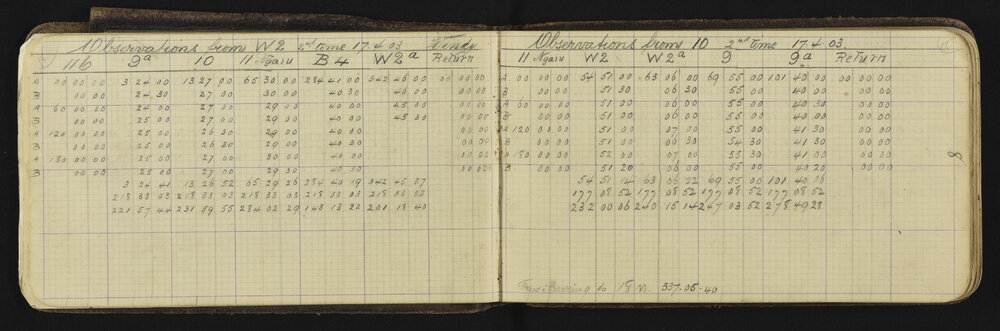 Observations from W2 2nd time 17.4.03. Windy
116 9a 10 11 Ngaru B4 W2a Return
A 00 00 00 3 24 00 13 27 00 65 30 00 284 41 00 342 46 00 00 00 00
B 00 00 24 30 27 00 30 00 40 30 46 00 00 00
A 60 00 00 24 00 27 00 29 00 40 00 45 00 00 00
B 00 00 25 00 27 00 29 00 40 00 45 30 00 00
A 120 00 00 25 00 26 30 29 00 40 30 00 00
B 00 00 25 00 26 30 29 00 40 30 00 00
A 180 00 00 25 00 27 00 30 00 40 30 00 00
B 00 00 25 00 27 00 29 30 40 30 00 00
3 24 41 13 26 52 65 29 26 284 40 19 342 45 37
218 33 03 218 33 03 218 33 03 218 33 03 218 33 03
221 57 44 231 59 55 284 02 29 143 13 22 201 18 40
Observations from 10 2nd time 17.4.03.
11 Ngaru W2 W2a 9 9a Return
A 00 00 00 54 51 00 63 06 00 69 55 00 101 40 00 00 00 00
B 00 00 51 30 06 30 55 00 40 00 00 00
A 60 00 00 51 00 06 00 55 00 40 30 00 00
B 00 00 51 00 06 00 55 00 40 00 00 00
A 120 00 00 51 00 07 00 55 00 41 30 00 00
B 00 00 51 00 00 30 54 30 41 30 00 00
A 180 00 00 52 00 07 00 55 30 41 00 00 00
B 00 00 51 20 06 00 55 00 40 20 00 00
54 51 14 63 06 22 69 55 00 101 40 36
177 08 52 177 08 52 177 08 52 177 08 52
232 00 06 240 15 14 247 03 52 278 49 28
8
True Bearing to 18 N. 337.05.40